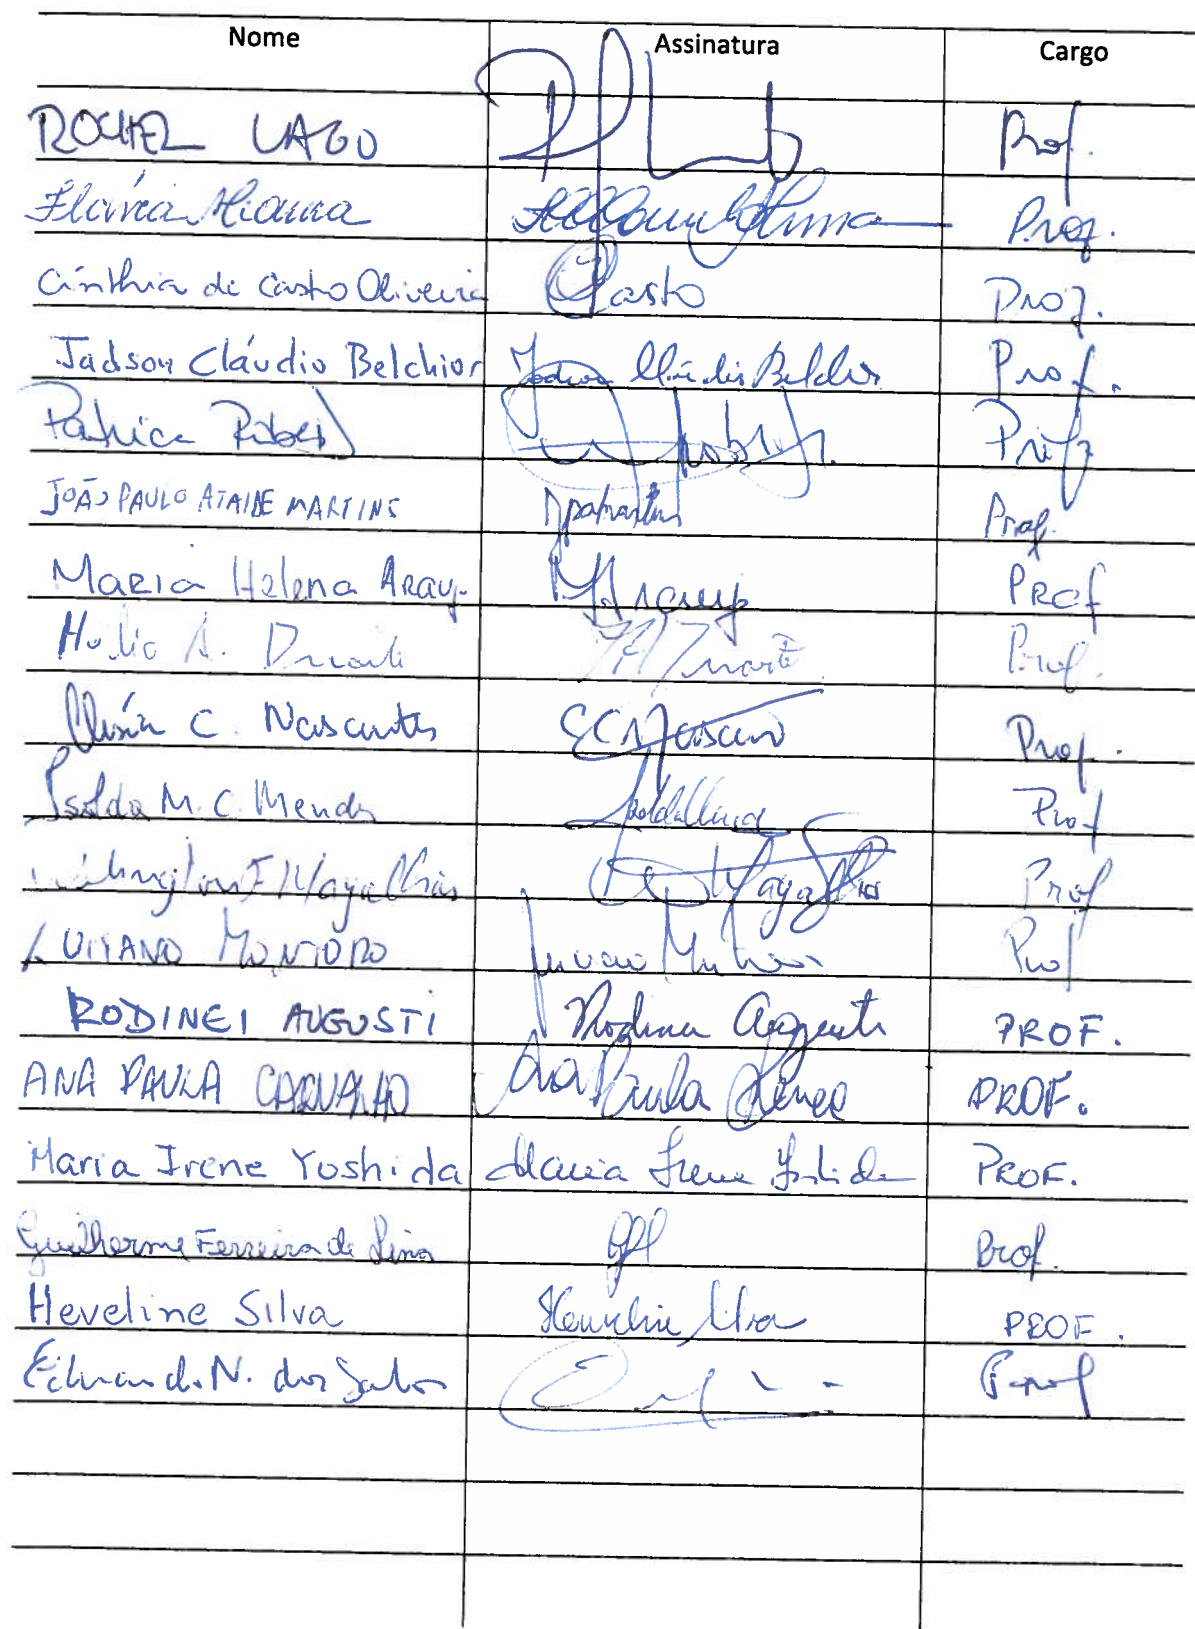 Nome Assinatura Cargo
ROCHEL LAGO Prof.
Flávia Prof.
Cínthia de Castro Oliveira Castro Prof.
Jadson Cláudio Belchior Jadson Cláudio Belchior Prof.
Patricia Prof
JOÃO PAULO ATAIDE MARTINS Prof.
Maria Helena Arauj. MHAraujo PROF
Hélio A. Duarte HADuarte Prof.
C. Prof.
Isolda M. C. Mendes Isolda Prof
F Magalhães Magalhães Prof
LUCIANO MONTORO Luciano Prof
RODINEI AUGUSTI Rodinei Augusti PROF.
ANA PAULA CARVALHO Ana Paula PROF.
Maria Irene Yoshida Maria Irene Yoshida PROF.
Guilherme Ferreira de Lima GFL Prof.
Heveline Silva Heveline Silva PROF.
Eduardo N. dos Prof